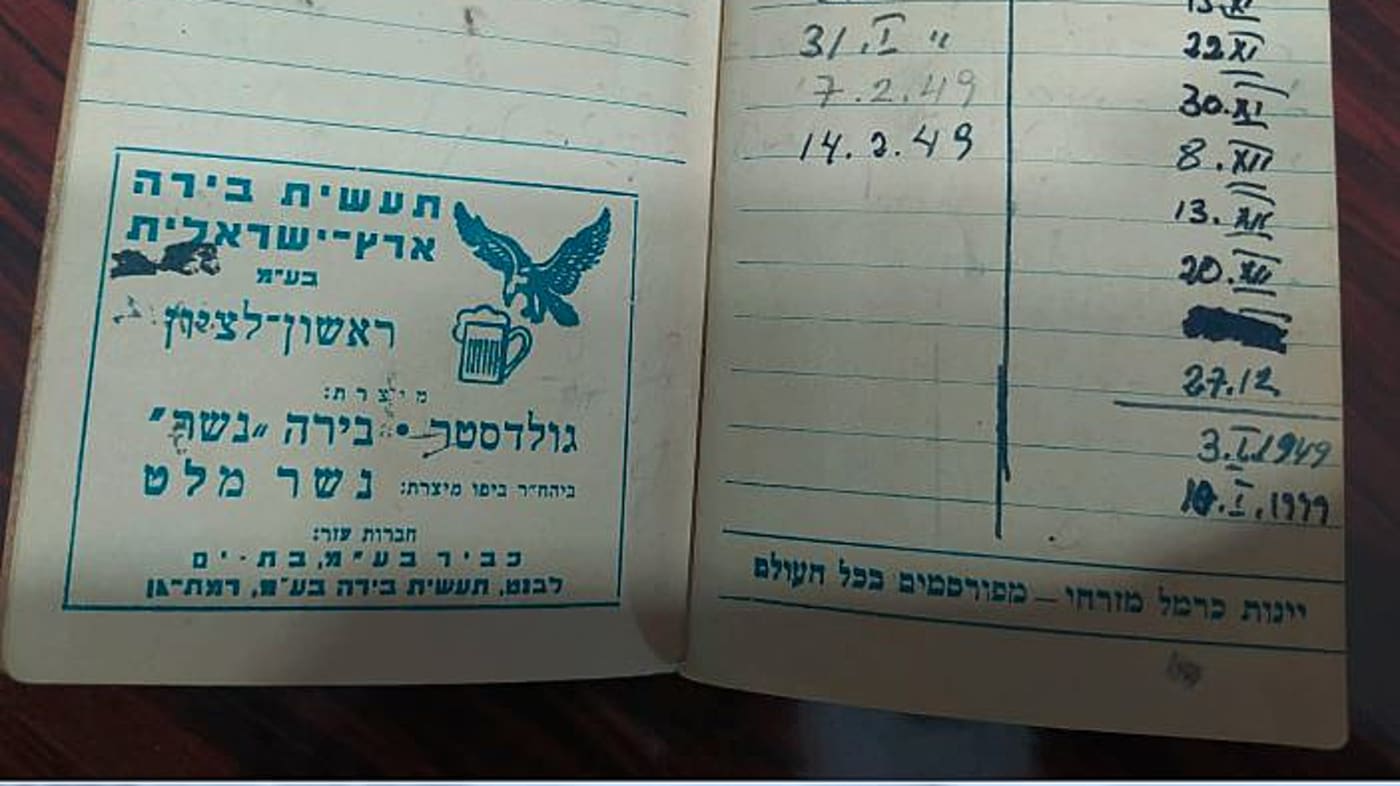 תעשית בירה
ארץ־ישראלית
בע״מ
ראשון־לציון
מיצרת:
גולדסטר • בירה „נשר״
ביהח״ר ביפו מיצרת: נשר מלט
חברות עזר:
כביר בע״מ, בת-ים
לבנט, תעשית בירה בע״מ, רמת־גן
31.I "
7.2.49
14.2.49
22 XI
30.XI
8.XII
13.XII
20.XII
27.12
3.I.1949
10.I.1949
יינות כרמל מזרחי – מפורסמים בכל העולם